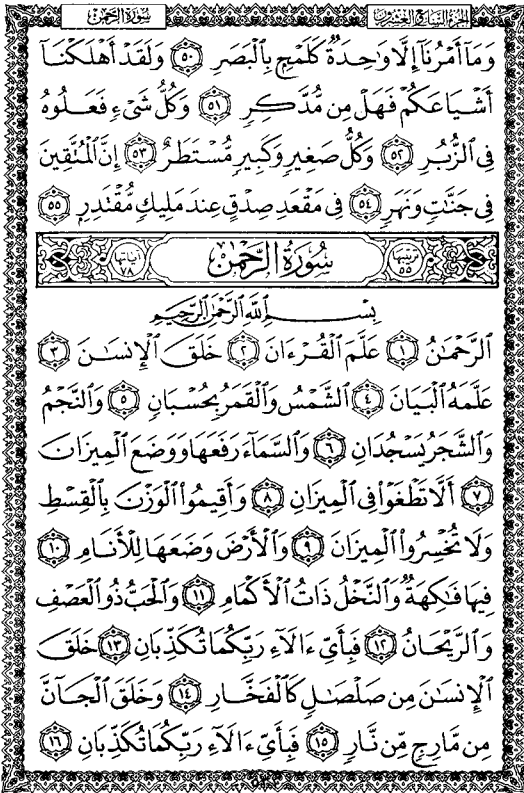 سُورَةُ الرَّحْمٰن الجزء السابع والعشرون
وَمَآ أَمْرُنَآ إِلَّا وَٰحِدَةٌ كَلَمْحٍۭ بِٱلْبَصَرِ ٥٠ وَلَقَدْ أَهْلَكْنَآ
أَشْيَاعَكُمْ فَهَلْ مِن مُّدَّكِرٍ ٥١ وَكُلُّ شَىْءٍ فَعَلُوهُ
فِى ٱلزُّبُرِ ٥٢ وَكُلُّ صَغِيرٍ وَكَبِيرٍ مُّسْتَطَرٌ ٥٣ إِنَّ ٱلْمُتَّقِينَ
فِى جَنَّٰتٍ وَنَهَرٍ ٥٤ فِى مَقْعَدِ صِدْقٍ عِندَ مَلِيكٍ مُّقْتَدِرٍۭ ٥٥
ترتيبها ٥٥ سُورَةُ الرَّحْمٰن آياتها ٧٨
بِسْمِ ٱللَّهِ ٱلرَّحْمَٰنِ ٱلرَّحِيمِ
ٱلرَّحْمَٰنُ ١ عَلَّمَ ٱلْقُرْءَانَ ٢ خَلَقَ ٱلْإِنسَٰنَ ٣
عَلَّمَهُ ٱلْبَيَانَ ٤ ٱلشَّمْسُ وَٱلْقَمَرُ بِحُسْبَانٍ ٥ وَٱلنَّجْمُ
وَٱلشَّجَرُ يَسْجُدَانِ ٦ وَٱلسَّمَآءَ رَفَعَهَا وَوَضَعَ ٱلْمِيزَانَ
٧ أَلَّا تَطْغَوْا۟ فِى ٱلْمِيزَانِ ٨ وَأَقِيمُوا۟ ٱلْوَزْنَ بِٱلْقِسْطِ
وَلَا تُخْسِرُوا۟ ٱلْمِيزَانَ ٩ وَٱلْأَرْضَ وَضَعَهَا لِلْأَنَامِ ١٠
فِيهَا فَٰكِهَةٌ وَٱلنَّخْلُ ذَاتُ ٱلْأَكْمَامِ ١١ وَٱلْحَبُّ ذُو ٱلْعَصْفِ
وَٱلرَّيْحَانُ ١٢ فَبِأَىِّ ءَالَآءِ رَبِّكُمَا تُكَذِّبَانِ ١٣ خَلَقَ
ٱلْإِنسَٰنَ مِن صَلْصَٰلٍ كَٱلْفَخَّارِ ١٤ وَخَلَقَ ٱلْجَآنَّ
مِن مَّارِجٍ مِّن نَّارٍ ١٥ فَبِأَىِّ ءَالَآءِ رَبِّكُمَا تُكَذِّبَانِ ١٦